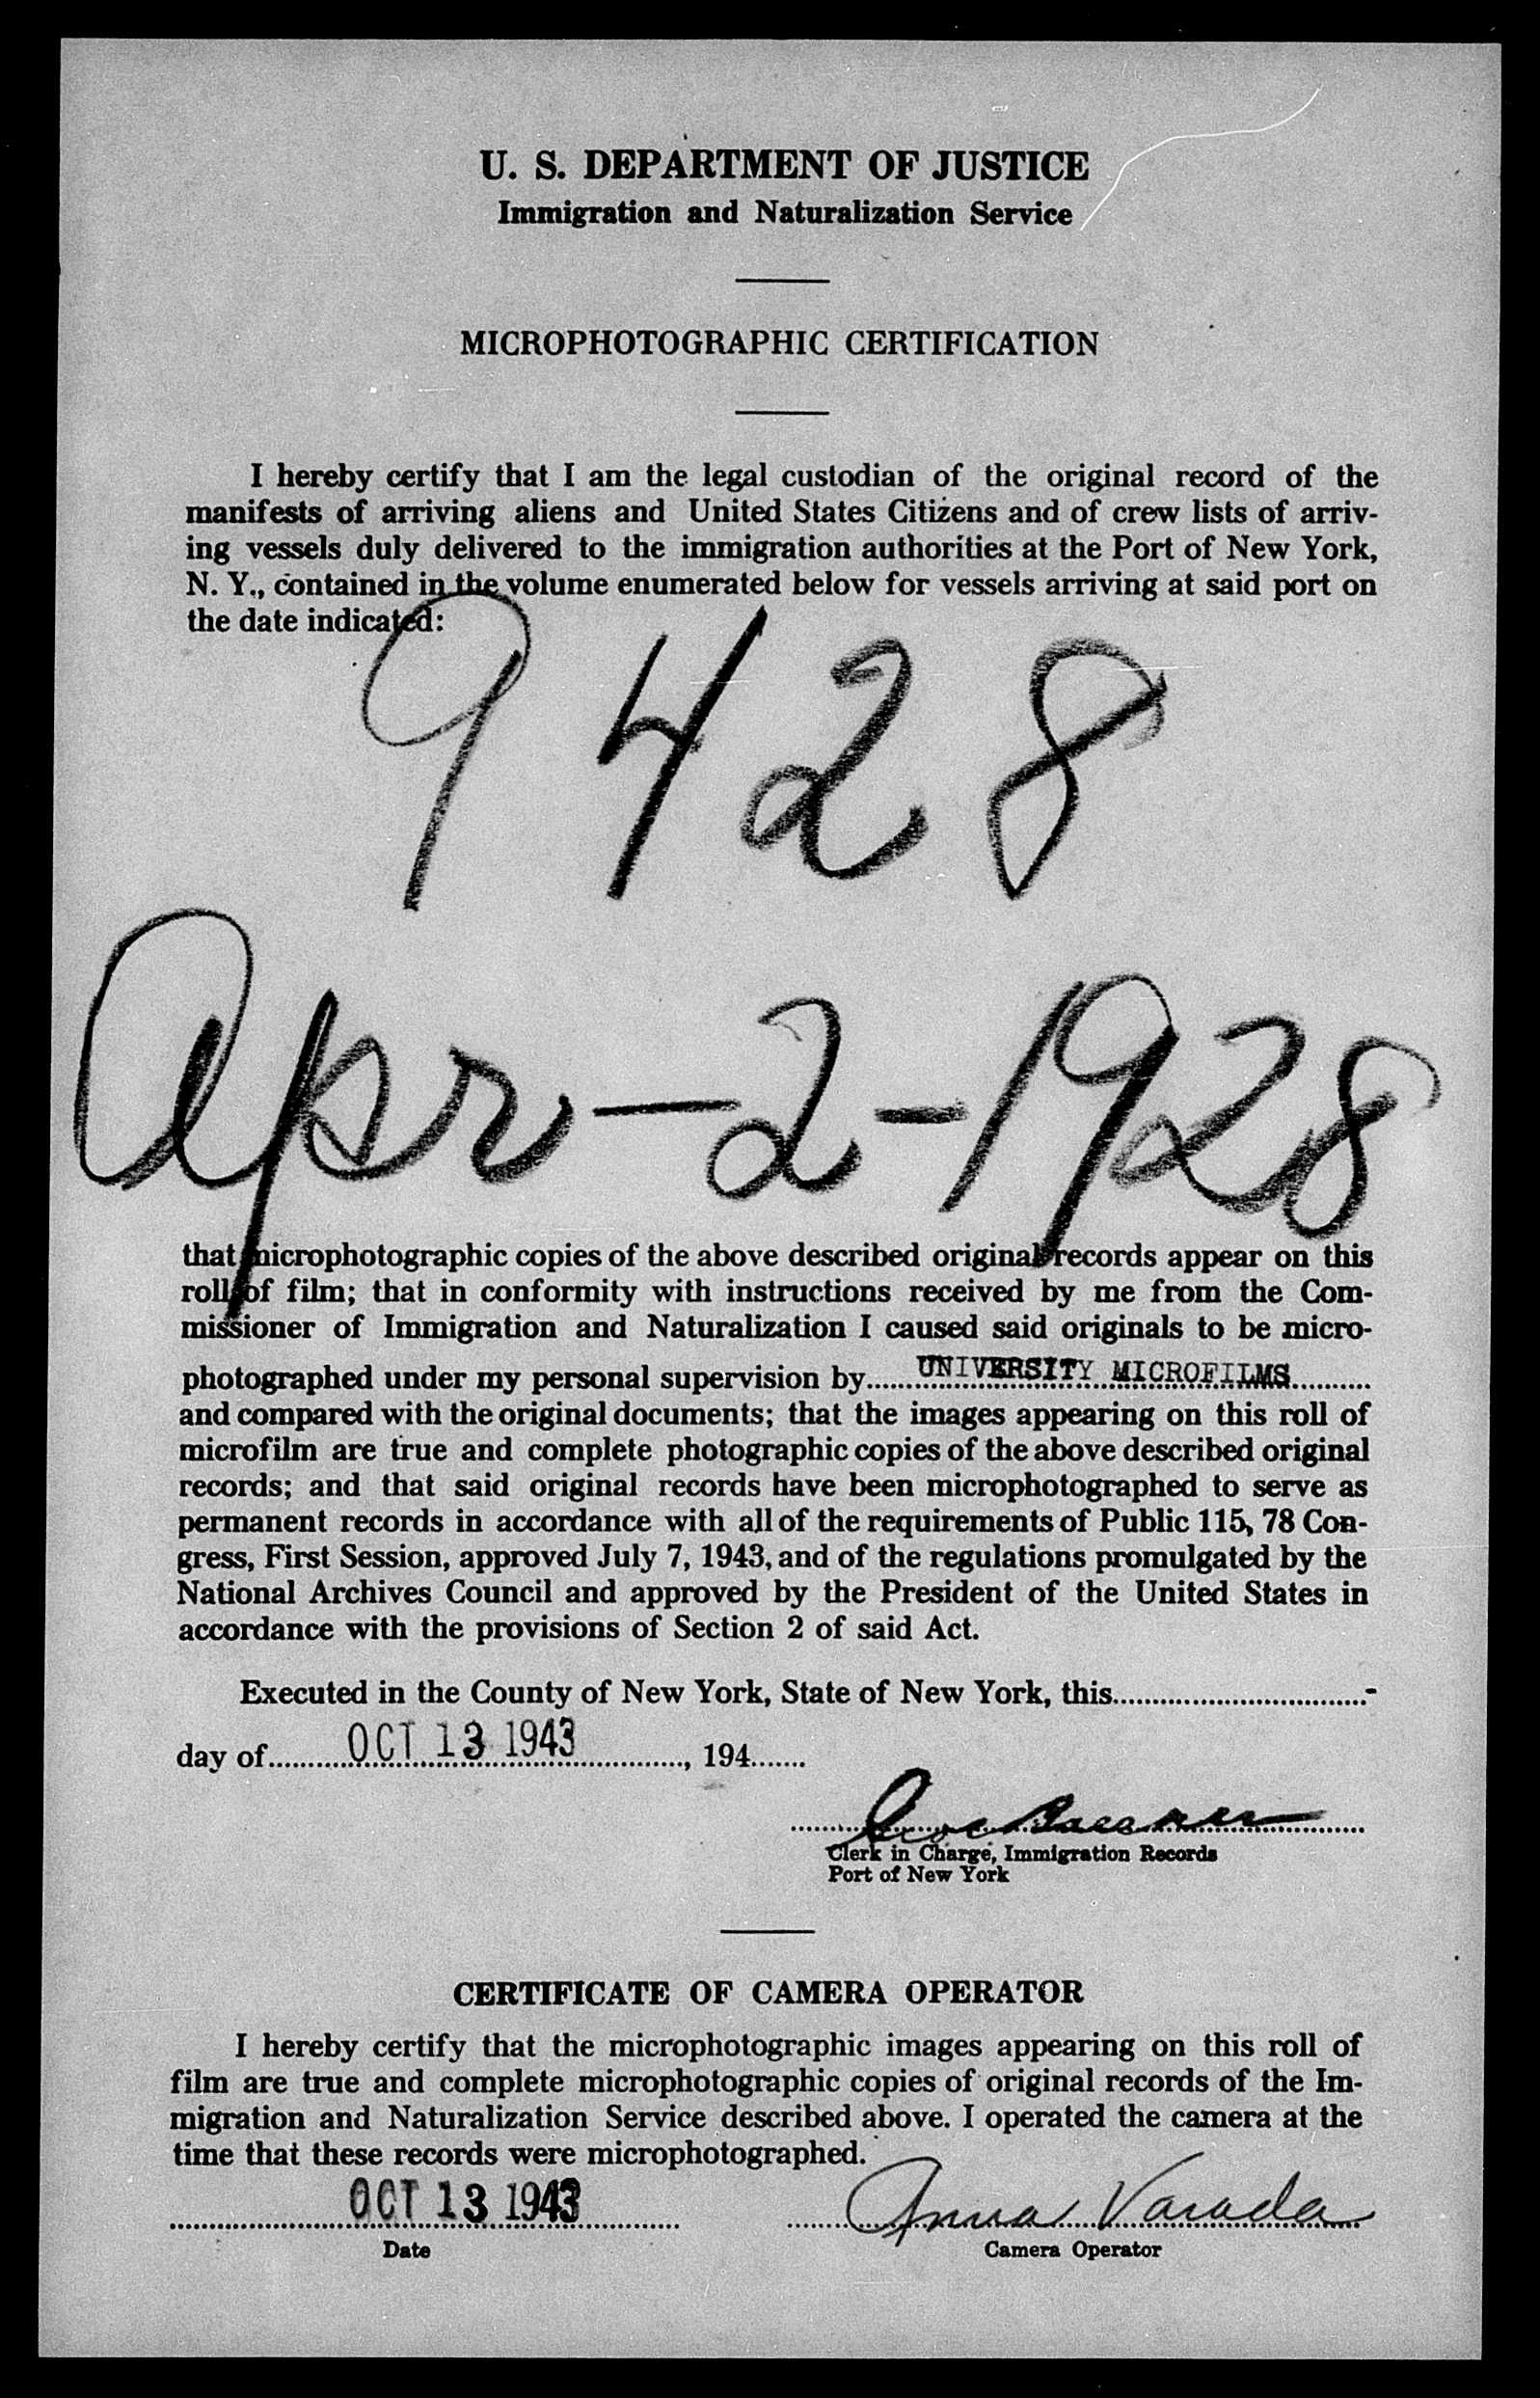 U. S. DEPARTMENT OF JUSTICE
Immigration and Naturalization Service
MICROPHOTOGRAPHIC CERTIFICATION
I hereby certify that I am the legal custodian of the original record of the
manifests of arriving aliens and United States Citizens and of crew lists of arriv-
ing vessels duly delivered to the immigration authorities at the Port of New York,
N. Y., contained in the volume enumerated below for vessels arriving at said port on
the date indicated:
9428
Apr-2-1928
that microphotographic copies of the above described original records appear on this
roll of film; that in conformity with instructions received by me from the Com-
missioner of Immigration and Naturalization I caused said originals to be micro-
photographed under my personal supervision by UNIVERSITY MICROFILMS
and compared with the original documents; that the images appearing on this roll of
microfilm are true and complete photographic copies of the above described original
records; and that said original records have been microphotographed to serve as
permanent records in accordance with all of the requirements of Public 115, 78 Con-
gress, First Session, approved July 7, 1943, and of the regulations promulgated by the
National Archives Council and approved by the President of the United States in
accordance with the provisions of Section 2 of said Act.
Executed in the County of New York, State of New York, this
day of OCT 13 1943, 194
Clerk in Charge, Immigration Records
Port of New York
CERTIFICATE OF CAMERA OPERATOR
I hereby certify that the microphotographic images appearing on this roll of
film are true and complete microphotographic copies of original records of the Im-
migration and Naturalization Service described above. I operated the camera at the
time that these records were microphotographed.
OCT 13 1943 Anna Varada
Date Camera Operator